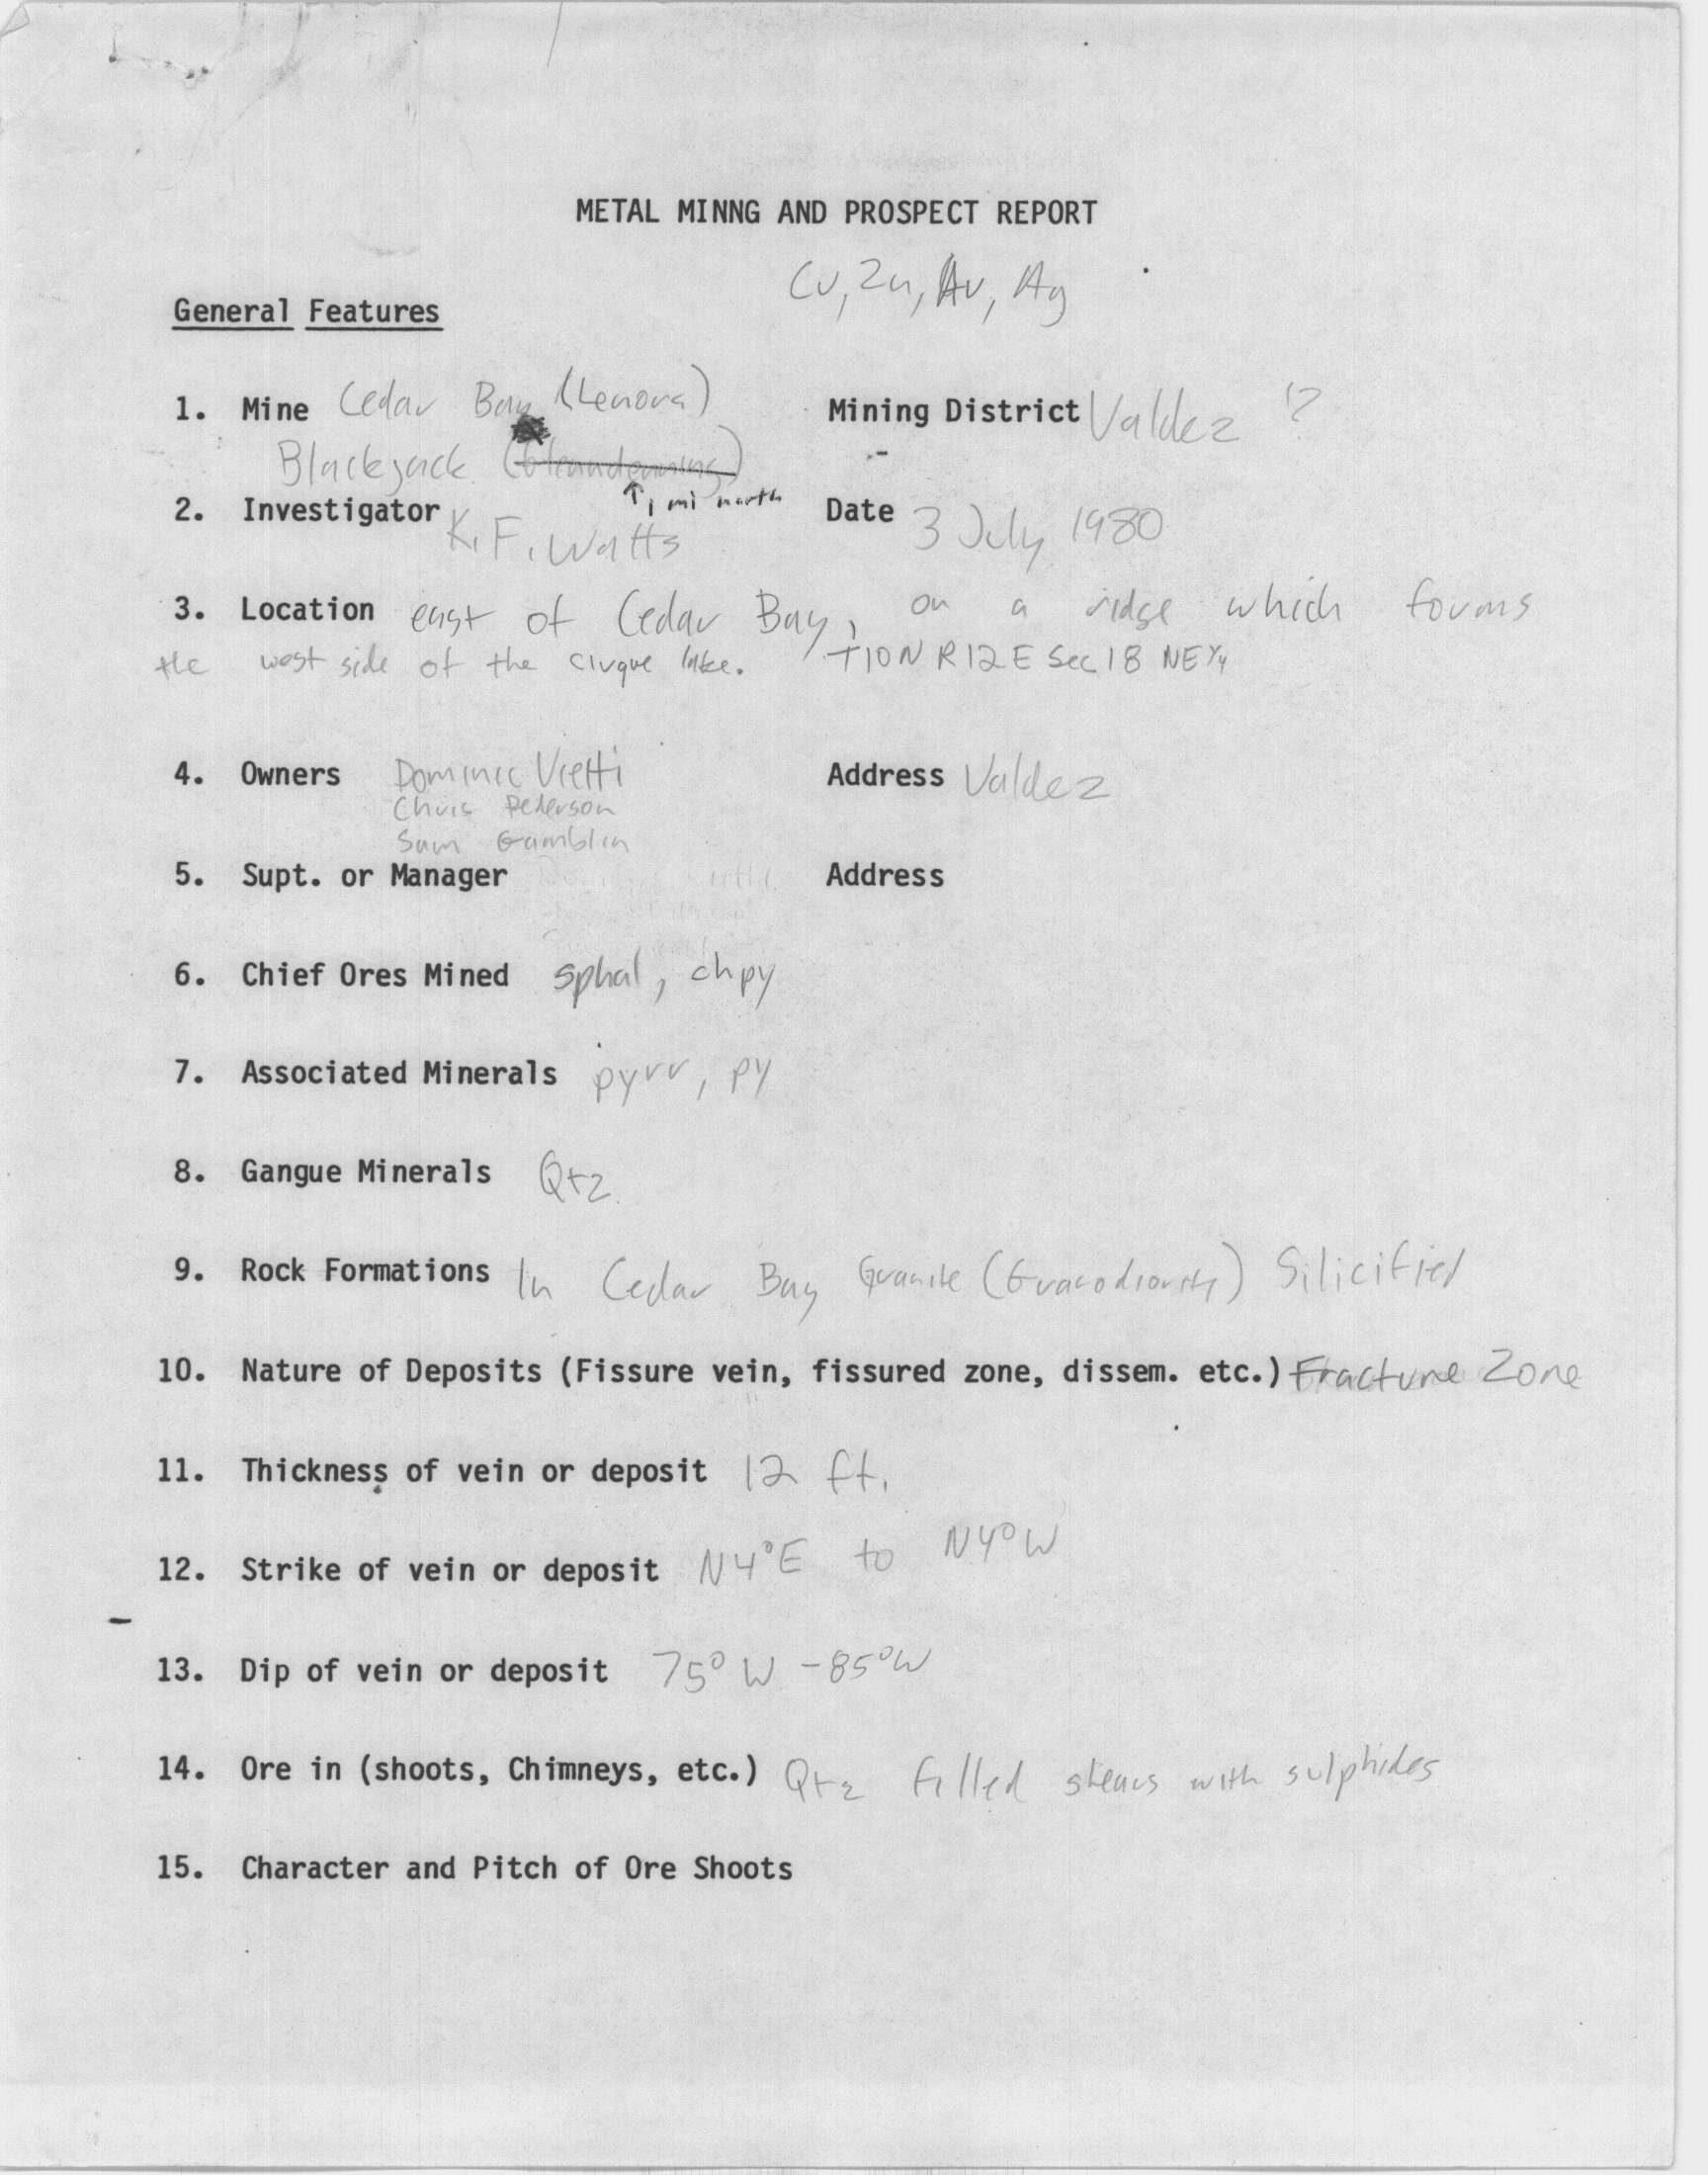 METAL MINNG AND PROSPECT REPORT
Cu, Zn, Au, Ag
General Features
1. Mine Cedar Bay (Lenora) Mining District Valdez ?
Blackjack
↑ 1 mi north
2. Investigator K.F. Watts Date 3 July 1980
3. Location east of Cedar Bay, on a ridge which forms
the west side of the cirque lake. T10N R12E Sec 18 NE¼
4. Owners Dominic Vietti Address Valdez
Chris Pederson
Sam Gamblin
5. Supt. or Manager Address
6. Chief Ores Mined sphal, chpy
7. Associated Minerals pyrr, py
8. Gangue Minerals Qtz
9. Rock Formations In Cedar Bay Granite (Granodiority) Silicified
10. Nature of Deposits (Fissure vein, fissured zone, dissem. etc.) Fracture Zone
11. Thickness of vein or deposit 12 ft.
12. Strike of vein or deposit N4°E to N4°W
13. Dip of vein or deposit 75°W - 85°W
14. Ore in (shoots, Chimneys, etc.) Qtz filled shears with sulphides
15. Character and Pitch of Ore Shoots